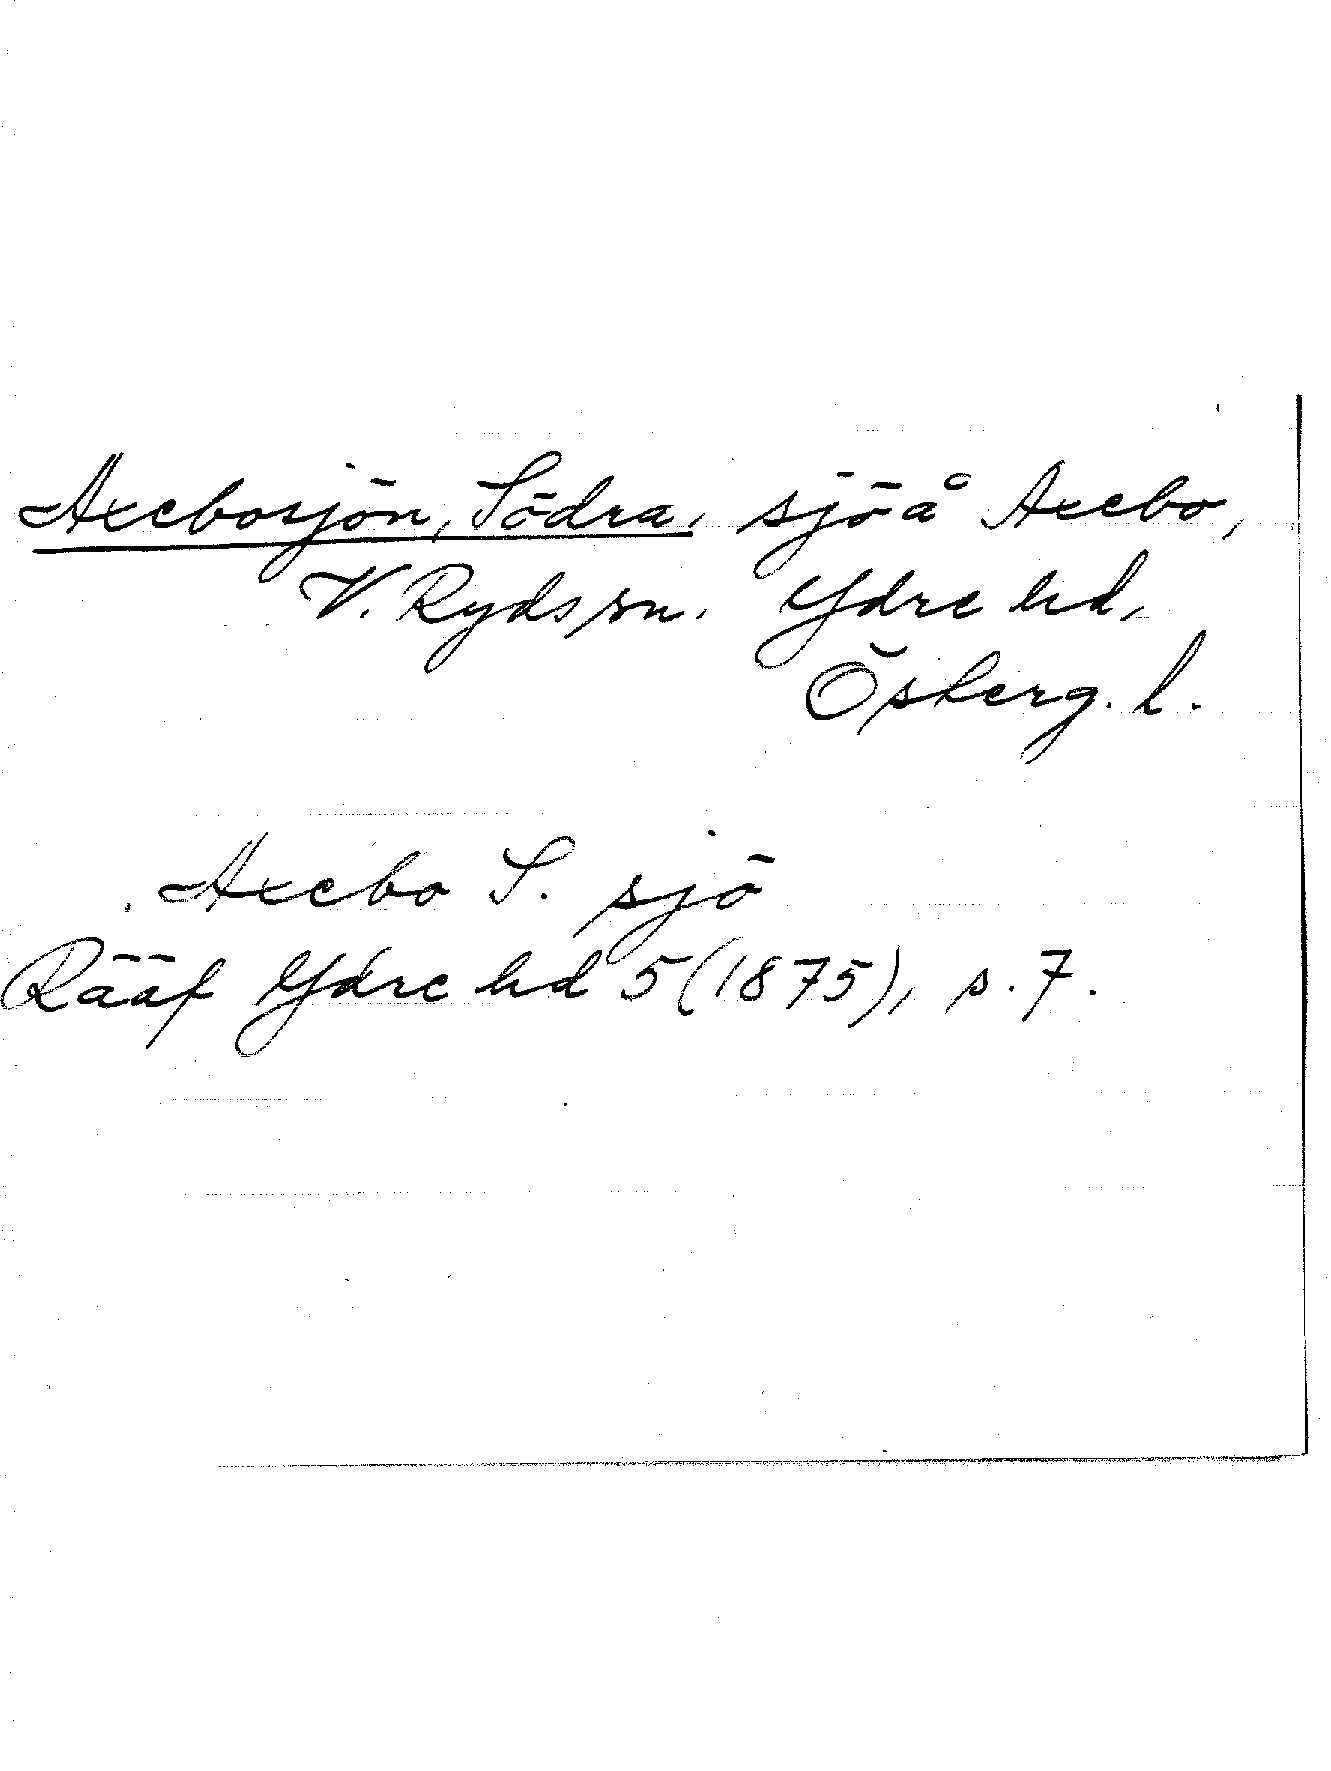 Axebosjön, Södra, sjö å Axebo,
V. Ryds sn. Ydre hd,
Österg. l.
Axebo S. sjö
Rääf Ydre hd 5 (1875), s. 7.